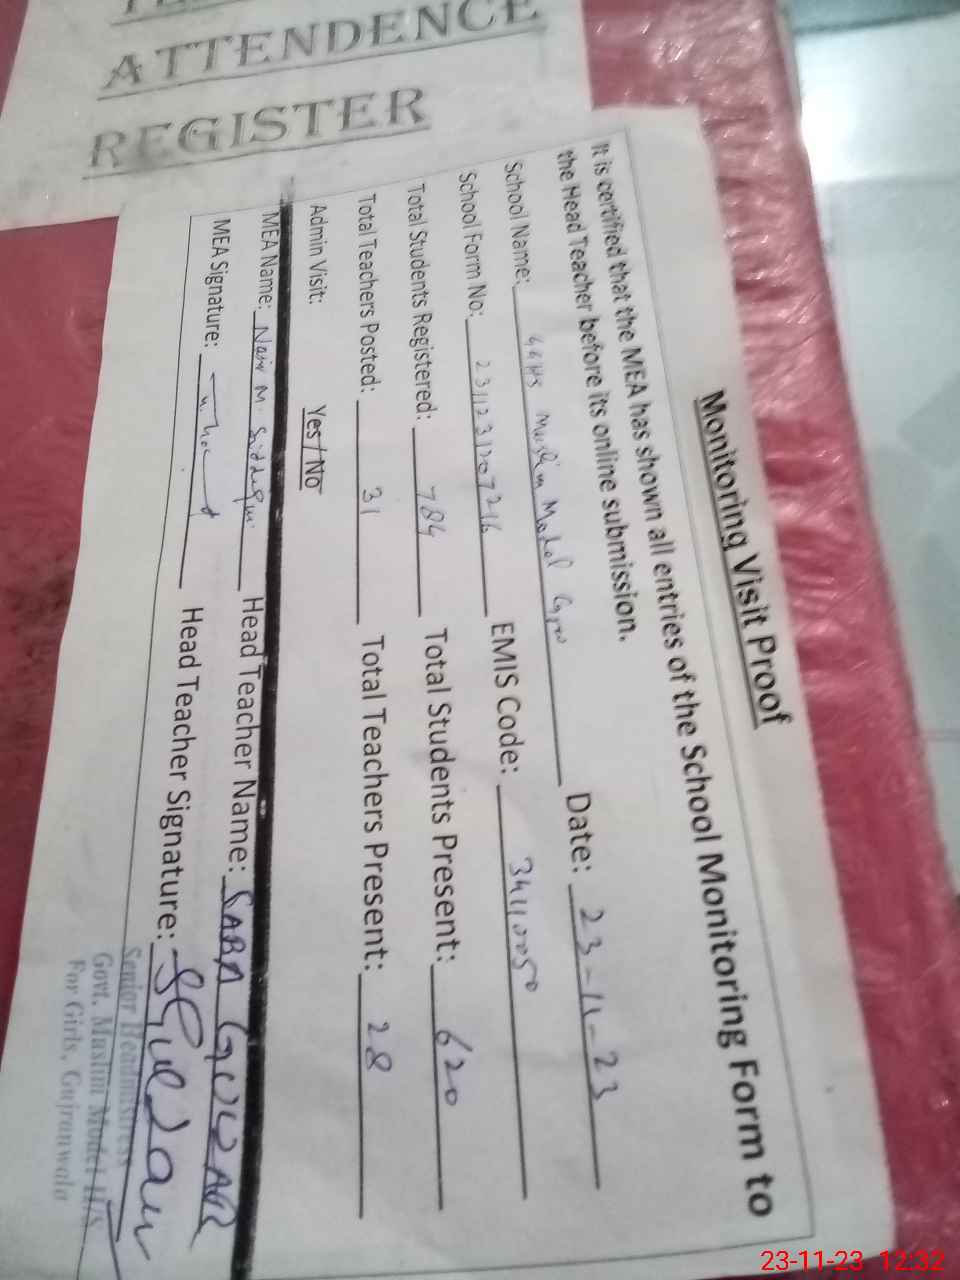 ATTENDENCE
REGISTER
Monitoring Visit Proof
It is certified that the MEA has shown all entries of the School Monitoring Form to
the Head Teacher before its online submission.
School Name: GGHS Muslim Model Date: 23-11-23
School Form No: EMIS Code: 34110050
Total Students Registered: 784 Total Students Present: 620
Total Teachers Posted: 31 Total Teachers Present: 28
Admin Visit: Yes / No
MEA Name: M. Siddiqui Head Teacher Name: SABA GULZAR
MEA Signature: Head Teacher Signature:
Senior Headmistress
Govt. Muslim Model HS
For Girls, Gujranwala
23-11-23 12:32